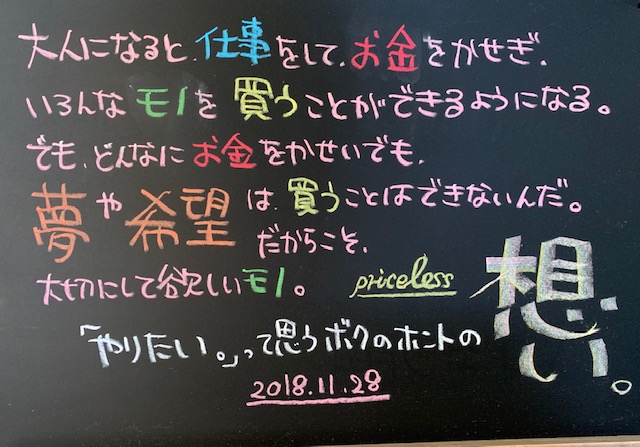 大人になると、仕事をして、お金をかせぎ、
いろんなモノを買うことができるようになる。
でも、どんなにお金をかせいでも、
夢や希望は買うことはできないんだ。
だからこそ、
大切にして欲しいモノ。 priceless
「やりたい。」って思うボクのホントの想い。
2018.11.28